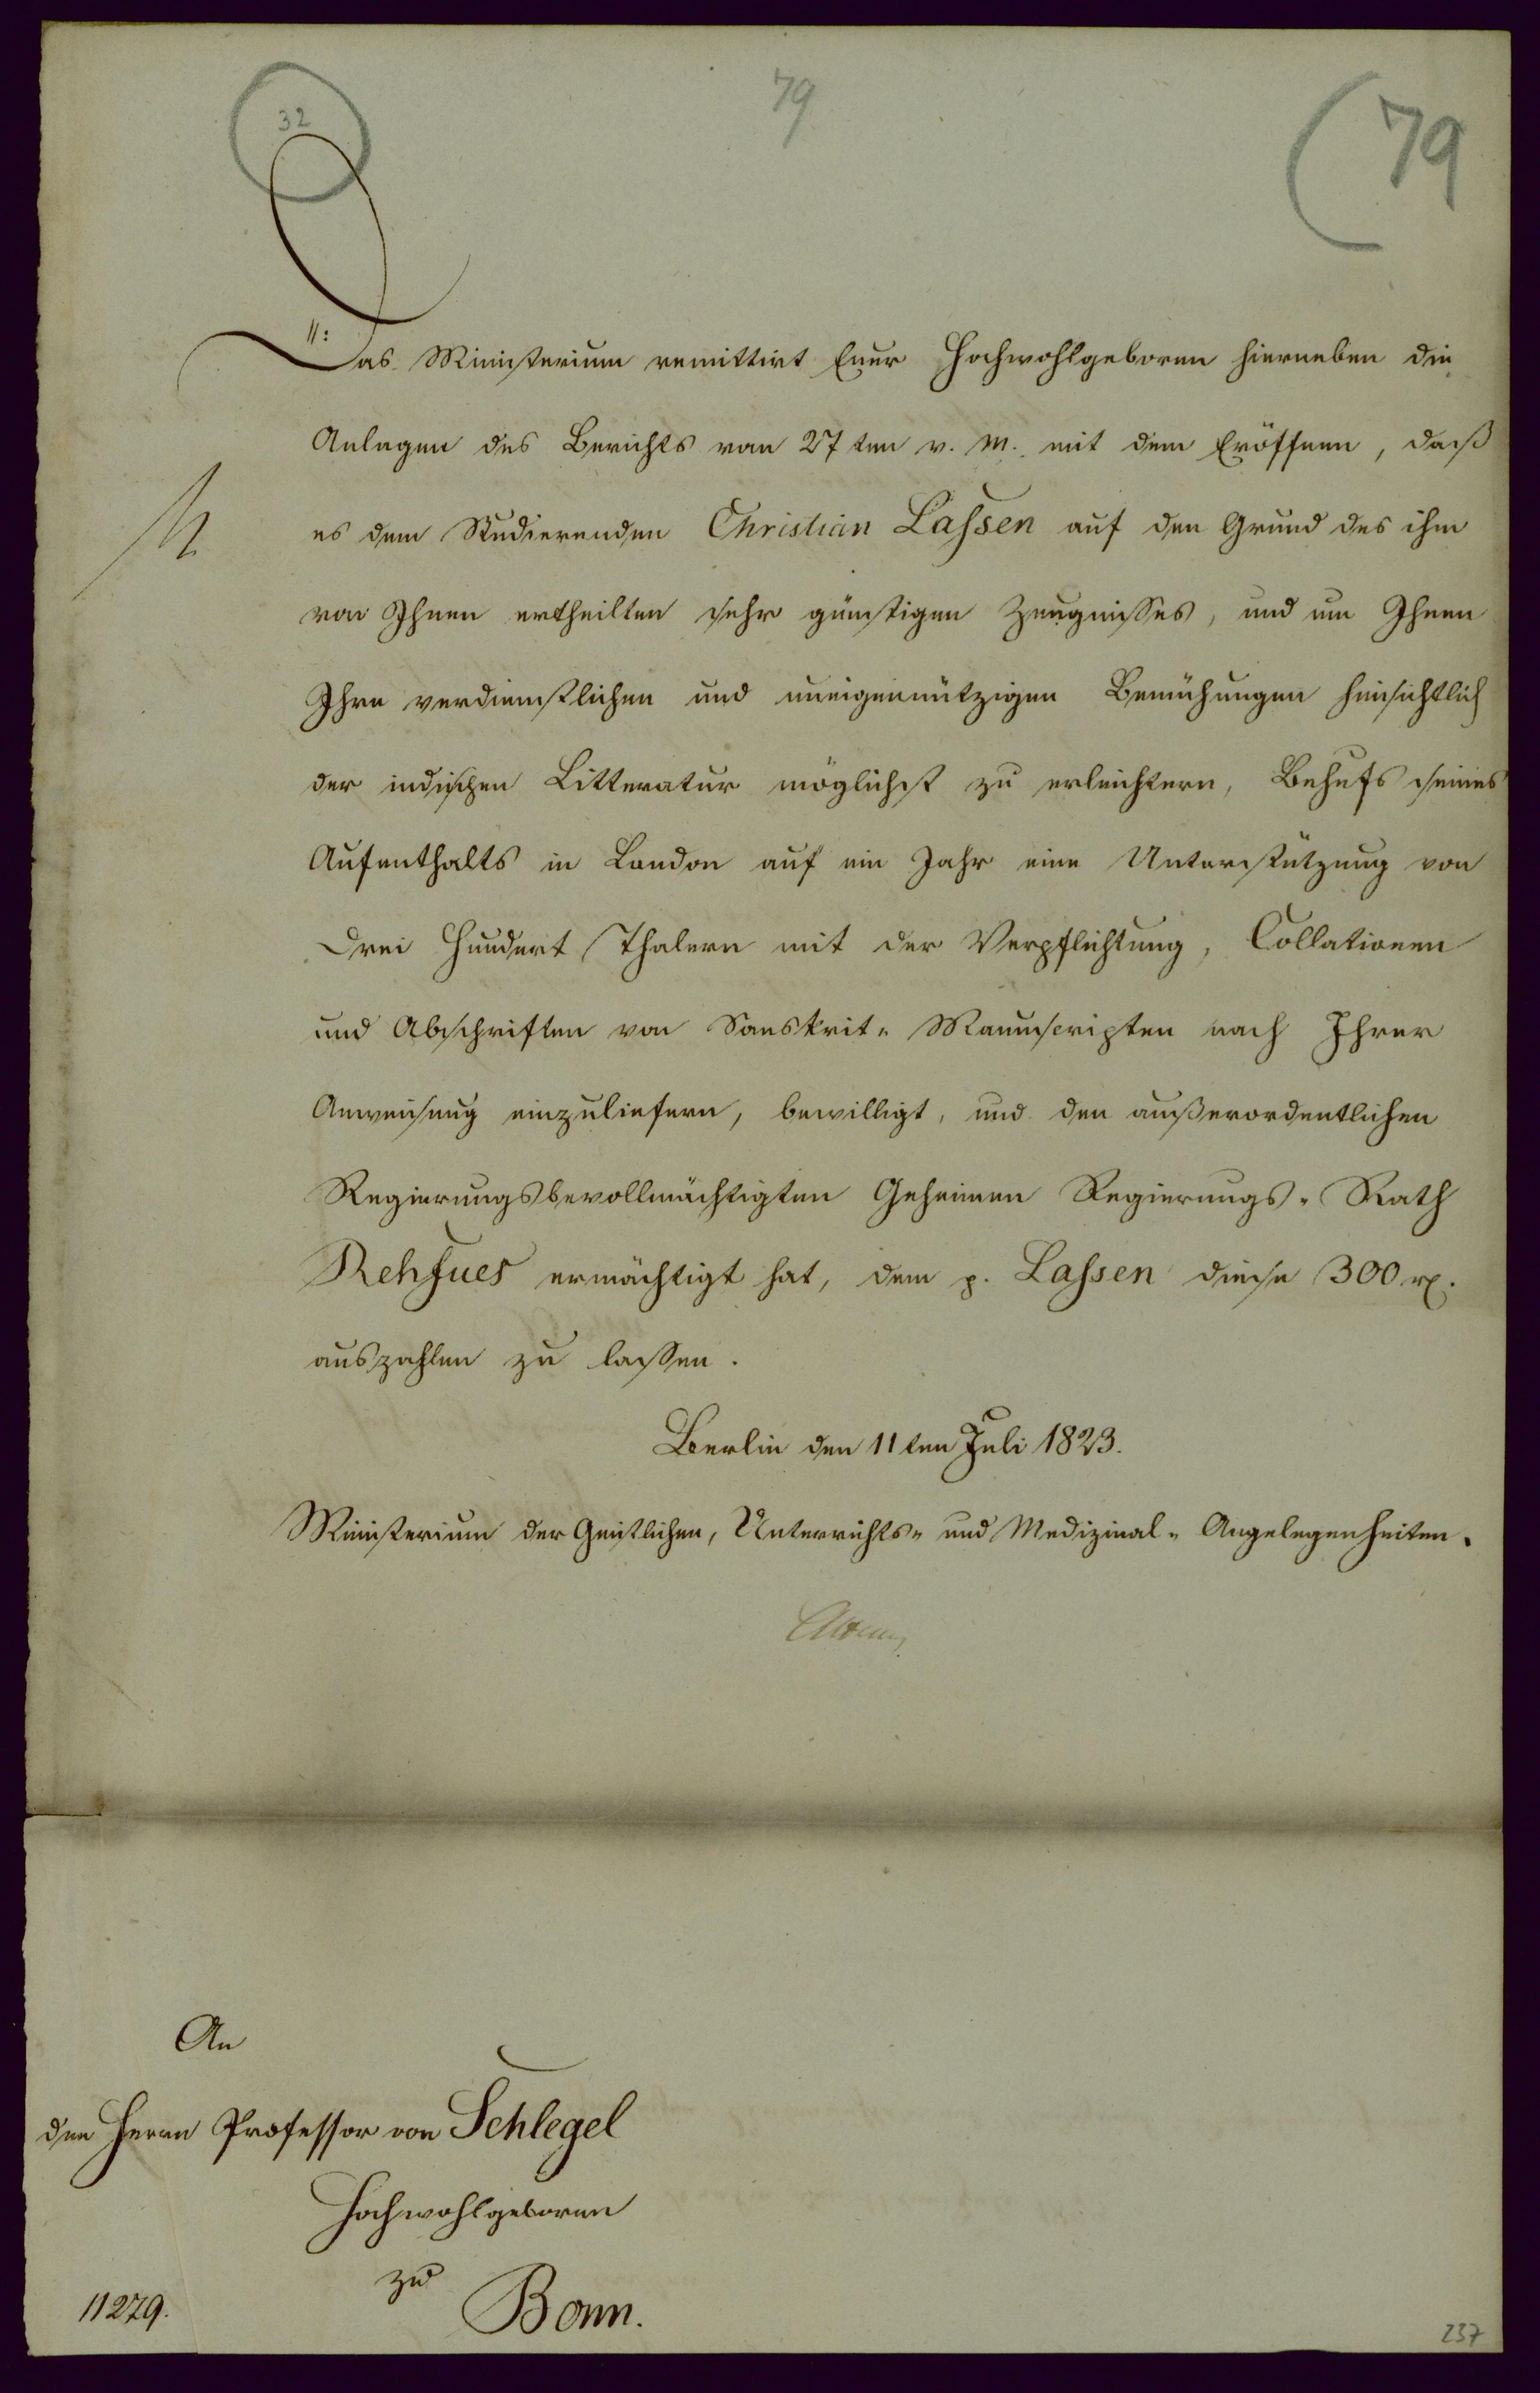 32
79
(79
Das Ministerium remittirt Euer Hochwohlgeboren hierneben die
Anlagen des Berichts vom 27ten v. M. mit dem Eröffnen, daß
es dem Studierenden Christian Lassen auf den Grund des ihm
von Ihnen ertheilten sehr günstigen Zeugnisses, und um Ihnen
Ihre verdienstlichen und uneigennützigen Bemühungen hinsichtlich
der indischen Litteratur möglichst zu erleichtern, Behufs seines
Aufenthalts in London auf ein Jahr eine Unterstützung von
Drei Hundert Thalern mit der Verpflichtung, Collationen
und Abschriften von Sanskrit-Manuscripten nach Ihrer
Anweisung einzuliefern, bewilligt, und den außerordentlichen
Regierungsbevollmächtigten Geheimen Regierungs-Rath
Rehfues ermächtigt hat, dem p. Lassen diese 300 rt.
auszahlen zu lassen.
Berlin den 11ten Juli 1823.
Ministerium der Geistlichen, Unterrichts- und Medizinal-Angelegenheiten.
Altenstein
An
den Herrn Professor von Schlegel
Hochwohlgeboren
zu
Bonn.
11279.
237